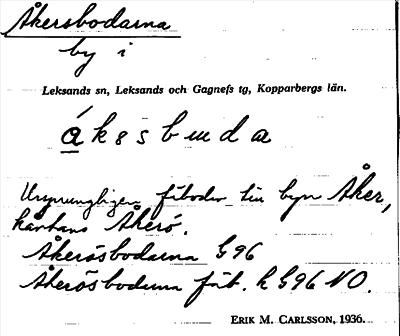 Åkersbodarna
by i
Leksands sn, Leksands och Gagnefs tg, Kopparbergs län.
Ursprungligen fäbodar till byn Åker,
Åkerö.
Åkerösbodarna G96
Åkerösbodarna fäb. h G96 NO.
ERIK M. CARLSSON, 1936.